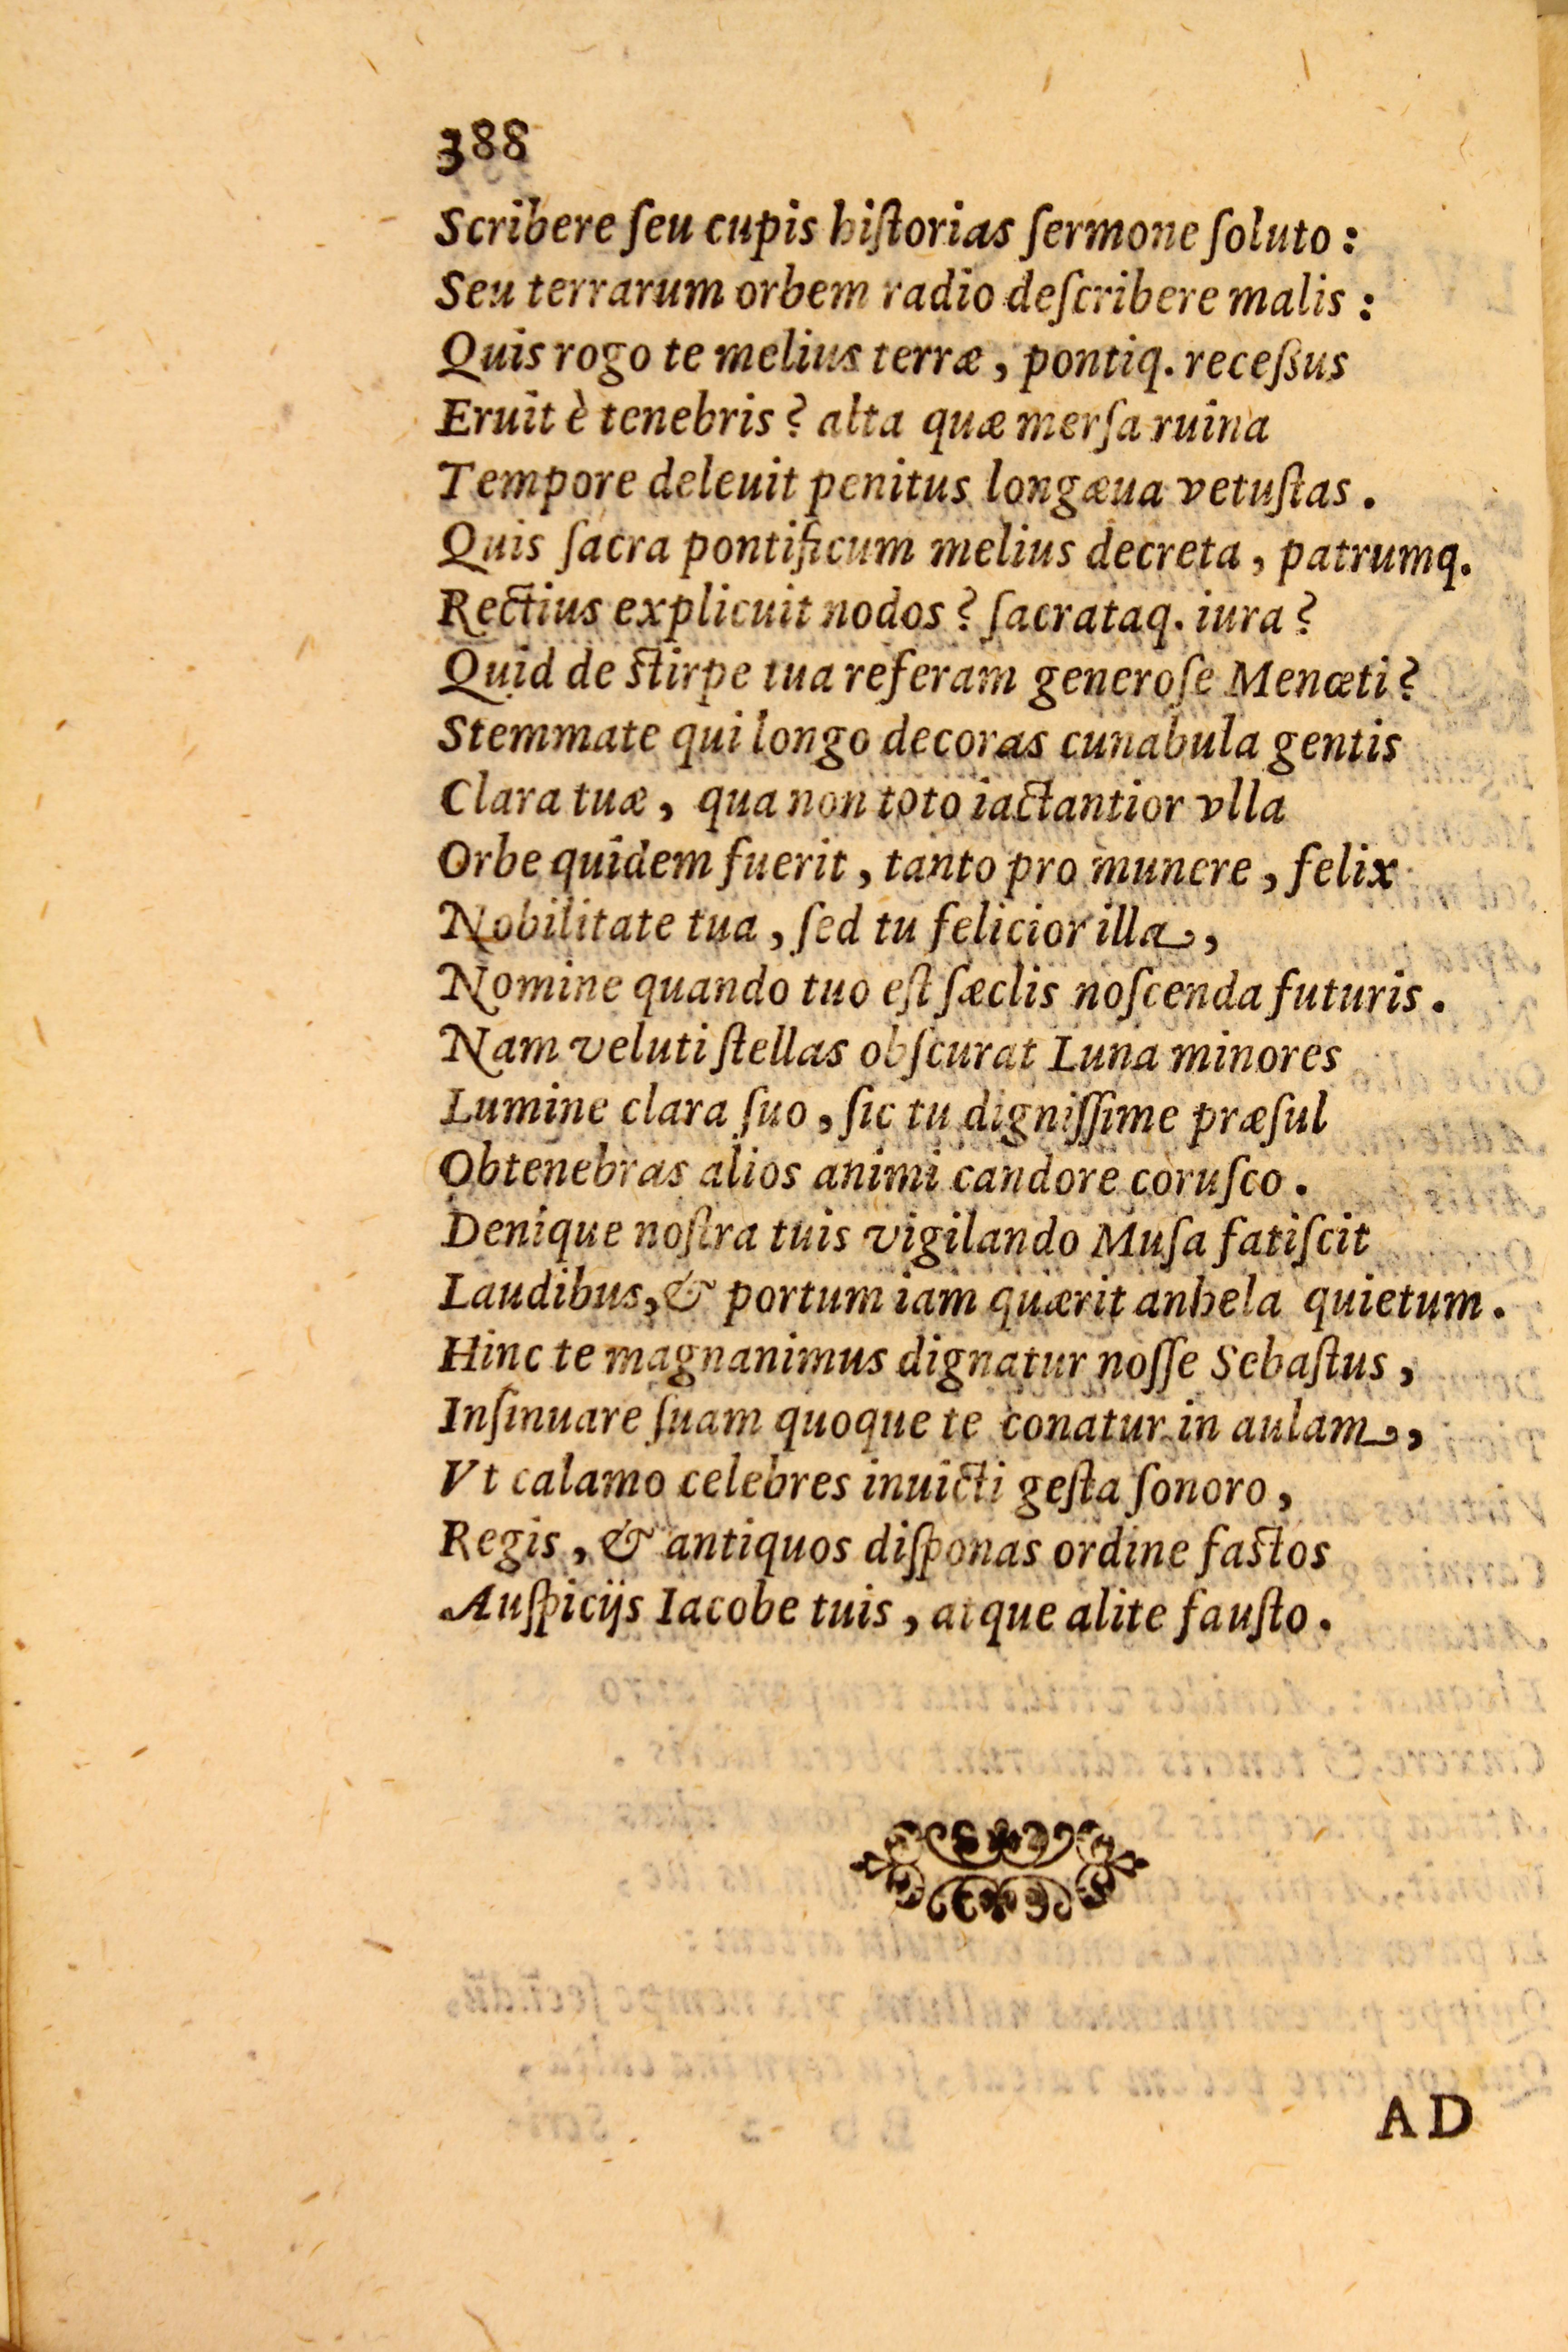 388
Scribere ſeu cupis hiſtorias ſermone ſoluto :
Seu terrarum orbem radio deſcribere malis :
Quis rogo te melius terræ , pontiq. receſsus
Eruit è tenebris ? alta quæ merſa ruina
Tempore deleuit penitus longæua vetuſtas .
Quis ſacra pontificum melius decreta , patrumq.
Rectius explicuit nodos ? ſacrataq. iura ?
Quid de ſtirpe tua referam generoſe Menœti ?
Stemmate qui longo decoras cunabula gentis
Clara tuæ , qua non toto iactantior vlla
Orbe quidem fuerit , tanto pro munere , felix
Nobilitate tua , ſed tu felicior illa ,
Nomine quando tuo eſt ſæclis noſcenda futuris .
Nam veluti ſtellas obſcurat Luna minores
Lumine clara ſuo , ſic tu digniſſime præſul
Obtenebras alios animi candore coruſco .
Denique noſtra tuis vigilando Muſa fatiſcit
Laudibus, & portum iam quærit anhela quietum .
Hinc te magnanimus dignatur noſſe Sebaſtus ,
Inſinuare ſuam quoque te conatur in aulam ,
Vt calamo celebres inuicti geſta ſonoro ,
Regis , & antiquos diſponas ordine faſtos
Auſpicijs Iacobe tuis , atque alite fauſto .
AD